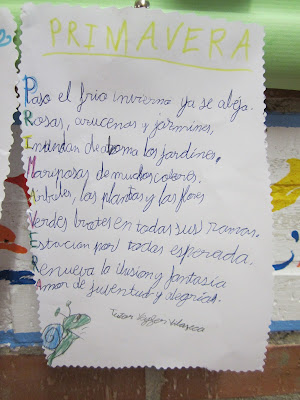 PRIMAVERA
Paso el frío invierno ya se aleja.
Rosas, azucenas y jazmines,
Inundan de aroma los jardines.
Mariposas de muchos colores.
Arboles, las plantas y las flores
Verdes brotes en todas sus ramas.
Estacion por todas esperada.
Renueva la ilusion y fantasia
Amor de juventud y alegrias.